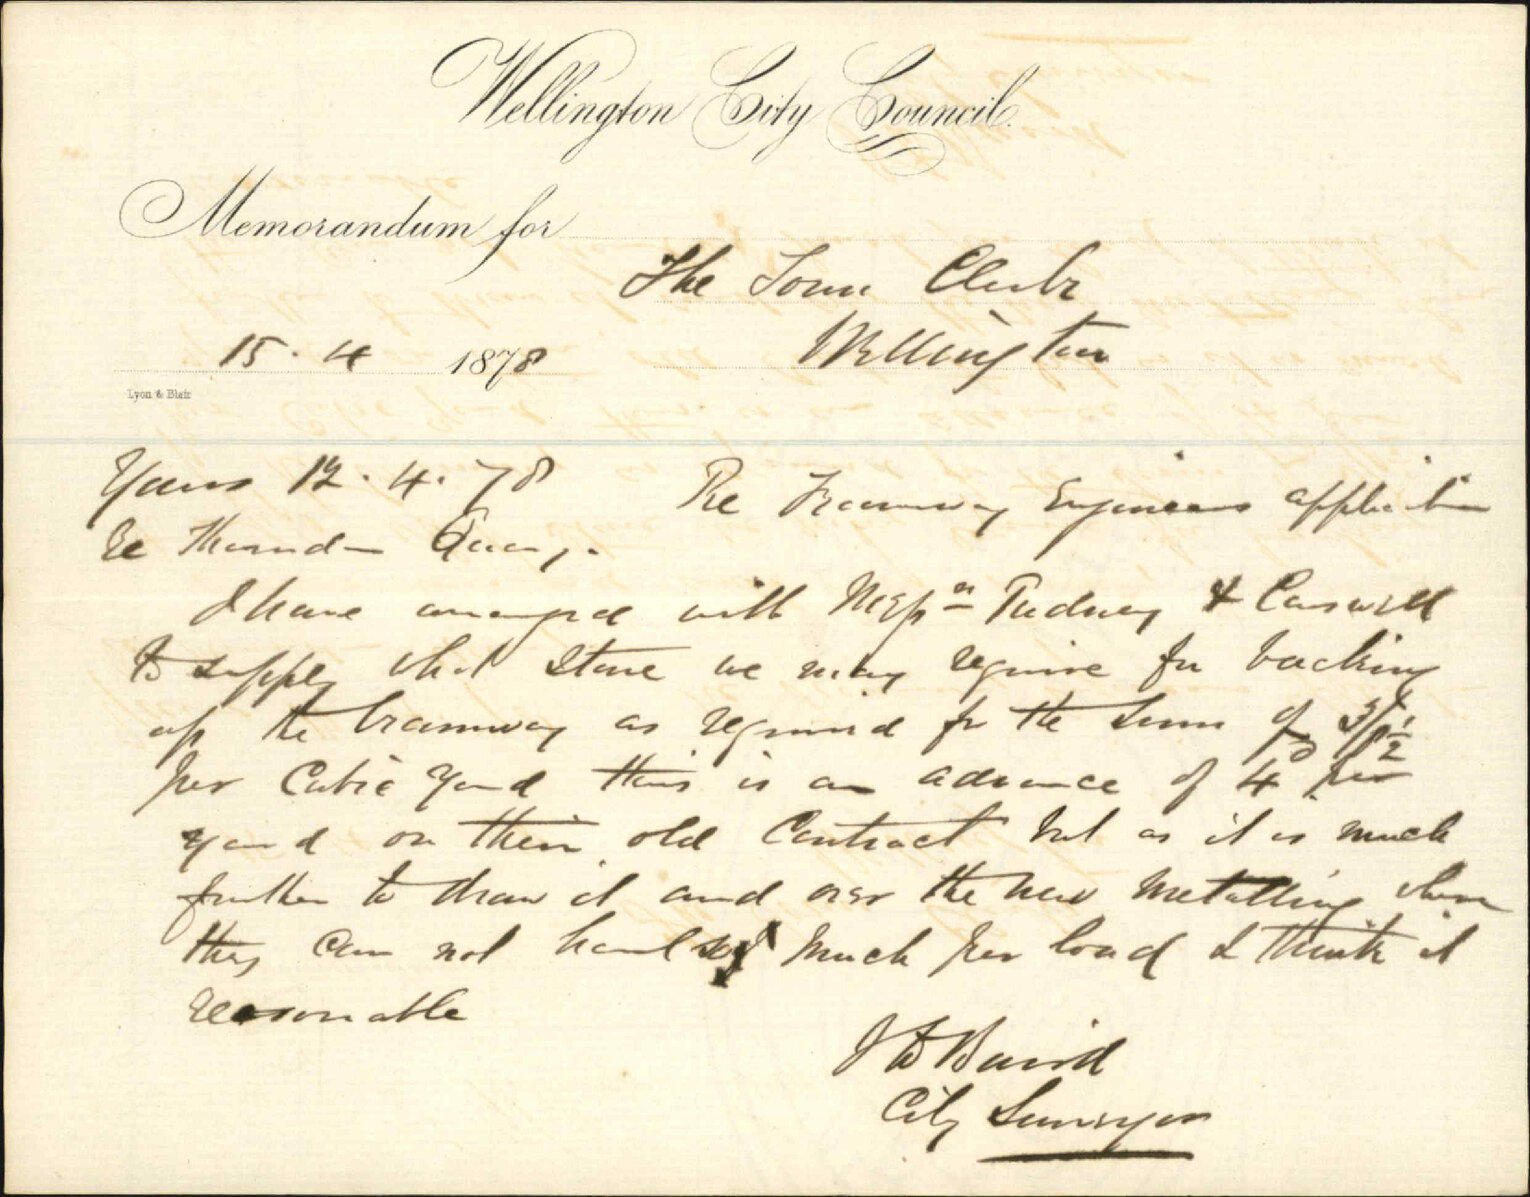 Wellington City Council.
Memorandum for
The Town Clerk
Wellington
15. 4 1878
Lyon & Blair
Yours 12. 4. 78 Re Tramway Engineers application
re Thorndon Quay.
I have arranged with Messrs & Carswell
to supply what stone we may require for backing
up the tramway as required for the sum of 3/1½
per Cubic Yard this is an advance of 4d per
yard on their old Contract but as it is much
further to draw it and over the new metalling where
they can not haul so much per load I think it
reasonable
J D Baird
City Surveyor